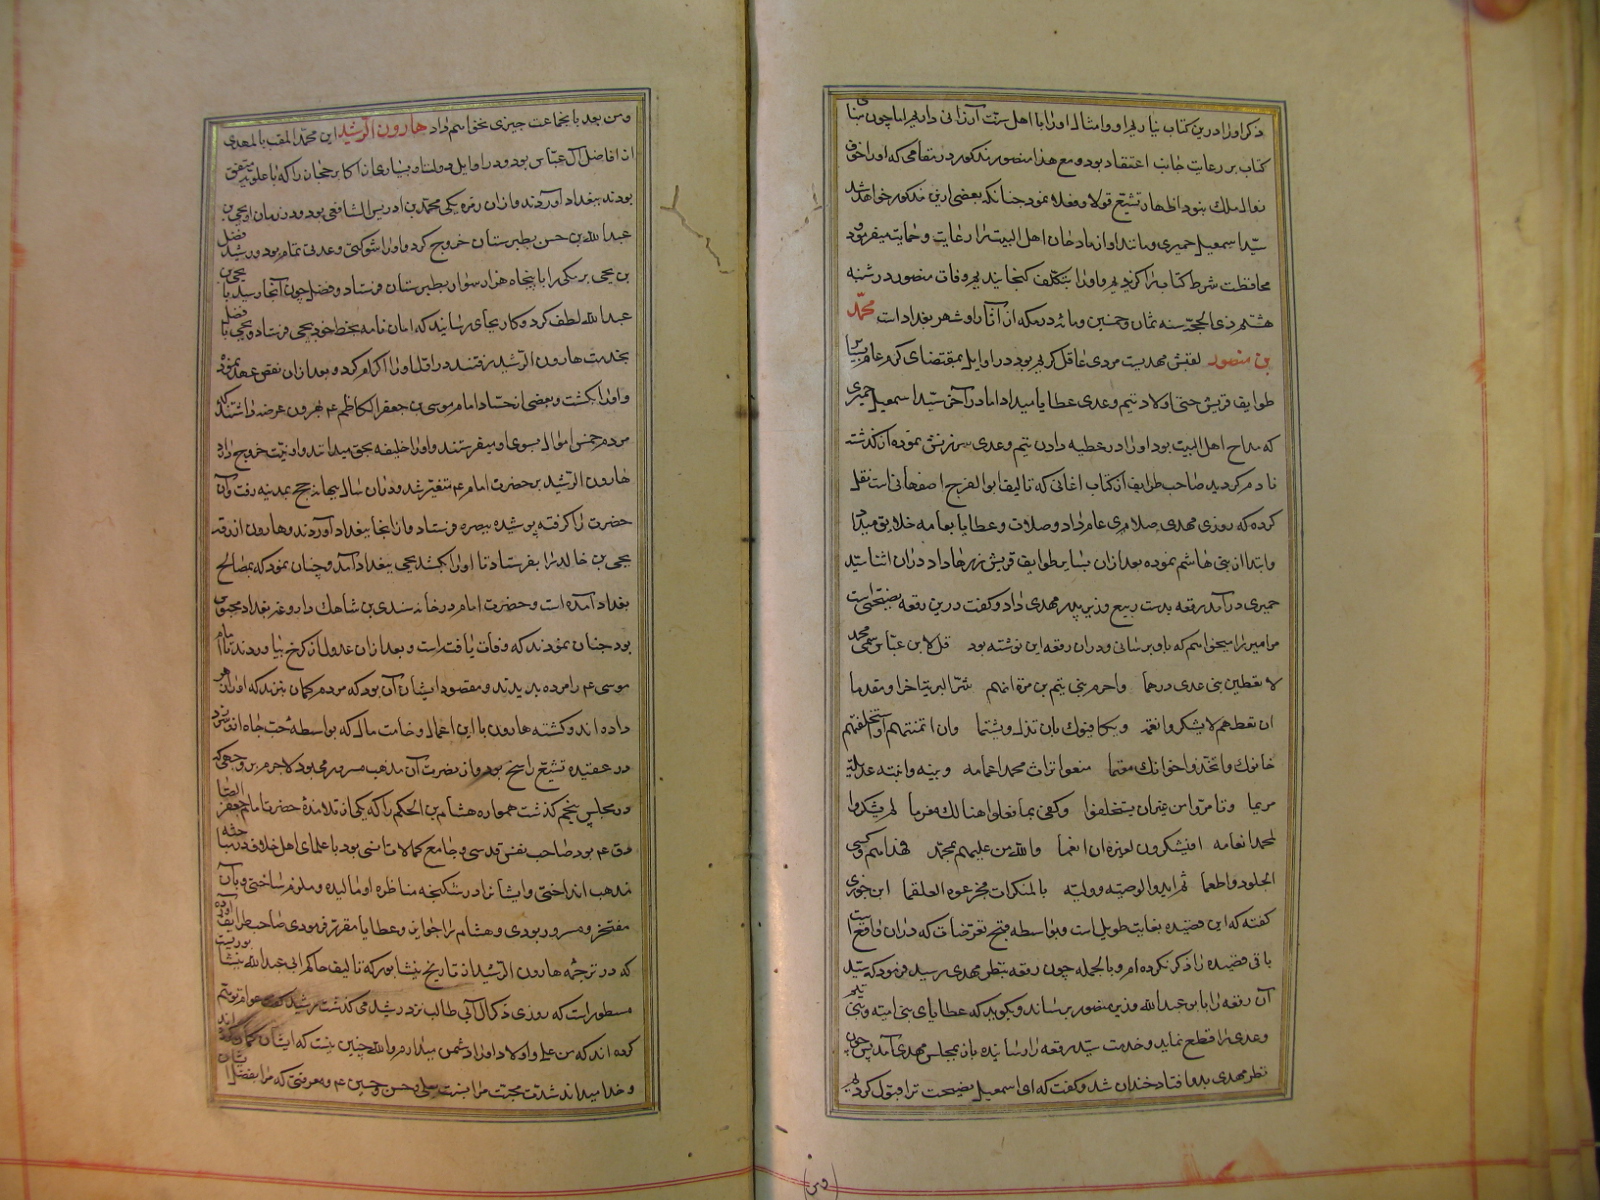 ذکر او را درین کتاب نیاریم او و امثال او را با اهل سنت ارزانی داریم اما چون بنای
کتاب بر رعایت جانب اعتقاد بود و مع هذا منصور مذکور در مقامی که او را خوف
زوال ملک نبود اظهار تشیع قولا و فعلا نمود چنانکه بعضی ازین مذکور خواهد شد
سید اسمعیل حمیری و مانند او از مادحان اهل البیت را رعایت و حمایت میفرمود
محافظت شرط کتاب را کردیم و او را بتکلف گنجانیدیم وفات منصور در شنبه
هشتم ذی الحجه سنه ثمان و خمسین و مائه در مکه از آثار او شهر بغداد است محمد
بن منصور لقبش مهدیست مردی عاقل کریم بود در اوایل بمقتضای کرم عام بسایر
طوایف قریش حتی اولاد تیم و عدی عطایا میداد اما در آخر سید اسمعیل حمیری
که مداح اهل البیت بود او را در عطیه دادن تیم و عدی سرزنش نموده از گذشته
نادم گردید صاحب طرایف از کتاب اغانی که تالیف ابوالفرج اصفهانی است نقل
کرده که روزی مهدی صلای عام داد و صلات و عطایا بعامه خلایق میداد
و ابتدا از بنی هاشم نموده بعد از آن بسایر طوایف قریش زرها داد در آن اثنا سید
حمیری در آمد رقعه بدست ربیع وزیر پدر مهدی داد و گفت درین رقعه نصیحتی است
مر امیر را میخواهم که باو برسانی و در آن رقعه این نوشته بود قل لابن عباس سمی محمد
لا تعطین بنی عدی درهما واحرم بنی تیم بن مرة انهم شر البریة اخرا و مقدما
ان تعطهم لا یشکروا نعمة ویکافئوک بان تذل وتشتما وان ائتمنتهم او استخلفتهم
خانوک واتخذوا خراجک مغنما منعوا تراث محمد اعمامه وبنیه وابنته عدیلة
مریما وتامروا من غیر ان یستخلفوا وکفی بما فعلوا هنالک مغرما لم یشکروا
لمحمد انعامه افیشکرون لغیره ان انعما والله من علیهم بمحمد وهداهم وکسی
الجلود واطعما ثم انبروا لوصیه وولیه بالمنکرات فجرعوه العلقما ابن جوزی
گفته که این قصیده بغایت طویل است و بواسطه قبح تعرضات که در آن واقع است
باقی قصیده را ذکر نکرده ام و بالجمله چون رقعه بنظر مهدی رسید فرمود که سید
آن رقعه را بابو عبدالله وزیر منصور برساند و بگوید که عطایای بنی امیه و بنی تیم
و عدی را قطع نماید و خدمت سید رقعه را رسانیده باز بمجلس مهدی آمد پس چون
نظر مهدی بدو افتاد خندان شد و گفت که ای اسمعیل نصیحت ترا قبول کردیم
(ص)
و من بعد باین جماعت چیزی نخواهم داد هارون الرشید ابن محمد الملقب بالمهدی
از افاضل آل عباس بود و در اوایل دولت او بسیاری از اکابر حجاز را که با علویه متفق
بودند ببغداد آوردند و از آن زمره یکی محمد بن ادریس الشافعی بود و در زمان او یحیی بن
عبدالله بن حسن بطبرستان خروج کرد و او را شوکتی و عدتی تمام بود و رشید فضل
بن یحیی برمکی را با پنجاه هزار سوار بطبرستان فرستاد و فضل چون آنجا رسید با یحیی بن
عبدالله لطف کرد و کار بجای رسانید که امان نامه بخط خود بیحیی فرستاد و یحیی با فضل
بخدمت هارون الرشید رفتند در اول او را اکرام کرد و بعد از آن نقض عهد نموده
و او را بکشت و بعضی از حساد امام موسی بن جعفر الکاظم ع بهرون عرضه داشتند که
مردم خمس اموال بسوی او میفرستند و او را خلیفه بحق میدانند و او نیت خروج دارد
هارون الرشید بر حضرت امام ع متغیر شد و در آن سال ببهانه حج بمدینه رفت و آن
حضرت را گرفته پوشیده ببصره فرستاد و از آنجا ببغداد آوردند و هارون از رقه
یحیی بن خالد را بفرستاد تا او را بکشد یحیی ببغداد آمد و چنان نمود که بمصالح
بغداد آمده است و حضرت امام در خانه سندی بن شاهک داروغه بغداد محبوس
بود چنان نمودند که وفات یافته است و بعد از آن عدول از کرخ بیاوردند تا امام
موسی ع را مرده بدیدند و مقصود ایشان آن بود که مردم گمان نبرند که او را زهر
داده اند و کشته هارون با این اعمال و خامت مال که بواسطه حب جاه ازو سر زد
در عقیده تشیع راسخ بود و از نصرت آن مذهب مسرور میبود لاجرم بر وجهی که
در مجلس پنجم گذشت همواره هشام بن الحکم را که یکی از تلامذهٔ حضرت امام جعفر الصا
دق ع بود صاحب نفس قدسی و جامع کمالات انسی بود با علمای اهل خلاف در مباحثه
مذهب انداختی و ایشانرا در شکنجه مناظره او مالیده و ملزم ساختی و بآن
مفتخر و مسرور بودی و هشام را جوایز و عطایا مقرر فرمودی صاحب طرایف آورده
که در ترجمه هارون الرشید از تاریخ نیشابور که تالیف حاکم ابی عبدالله نیشابوریست
مسطور است که روزی ذکر آل ابی طالب نزد رشید می گذشت رشید گفت عوام توهم
کرده اند که من علی و اولاد او را دشمن میدارم والله چنین نیست که ایشان گمان کرده اند
و خدا میداند شدت محبت مرا نسبت بعلی و حسن و حسین ع و معرفتی که مرا بفضل ایشان